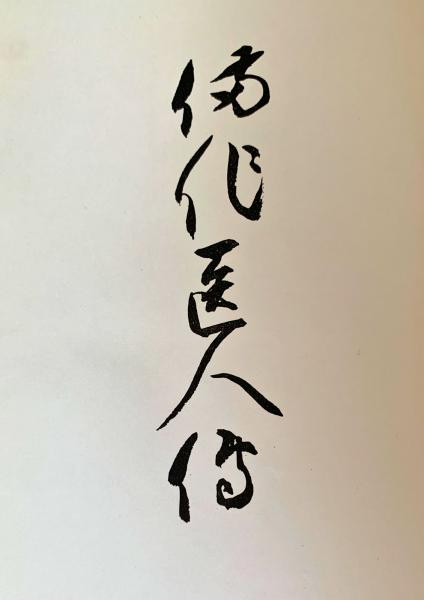 備作医人傳